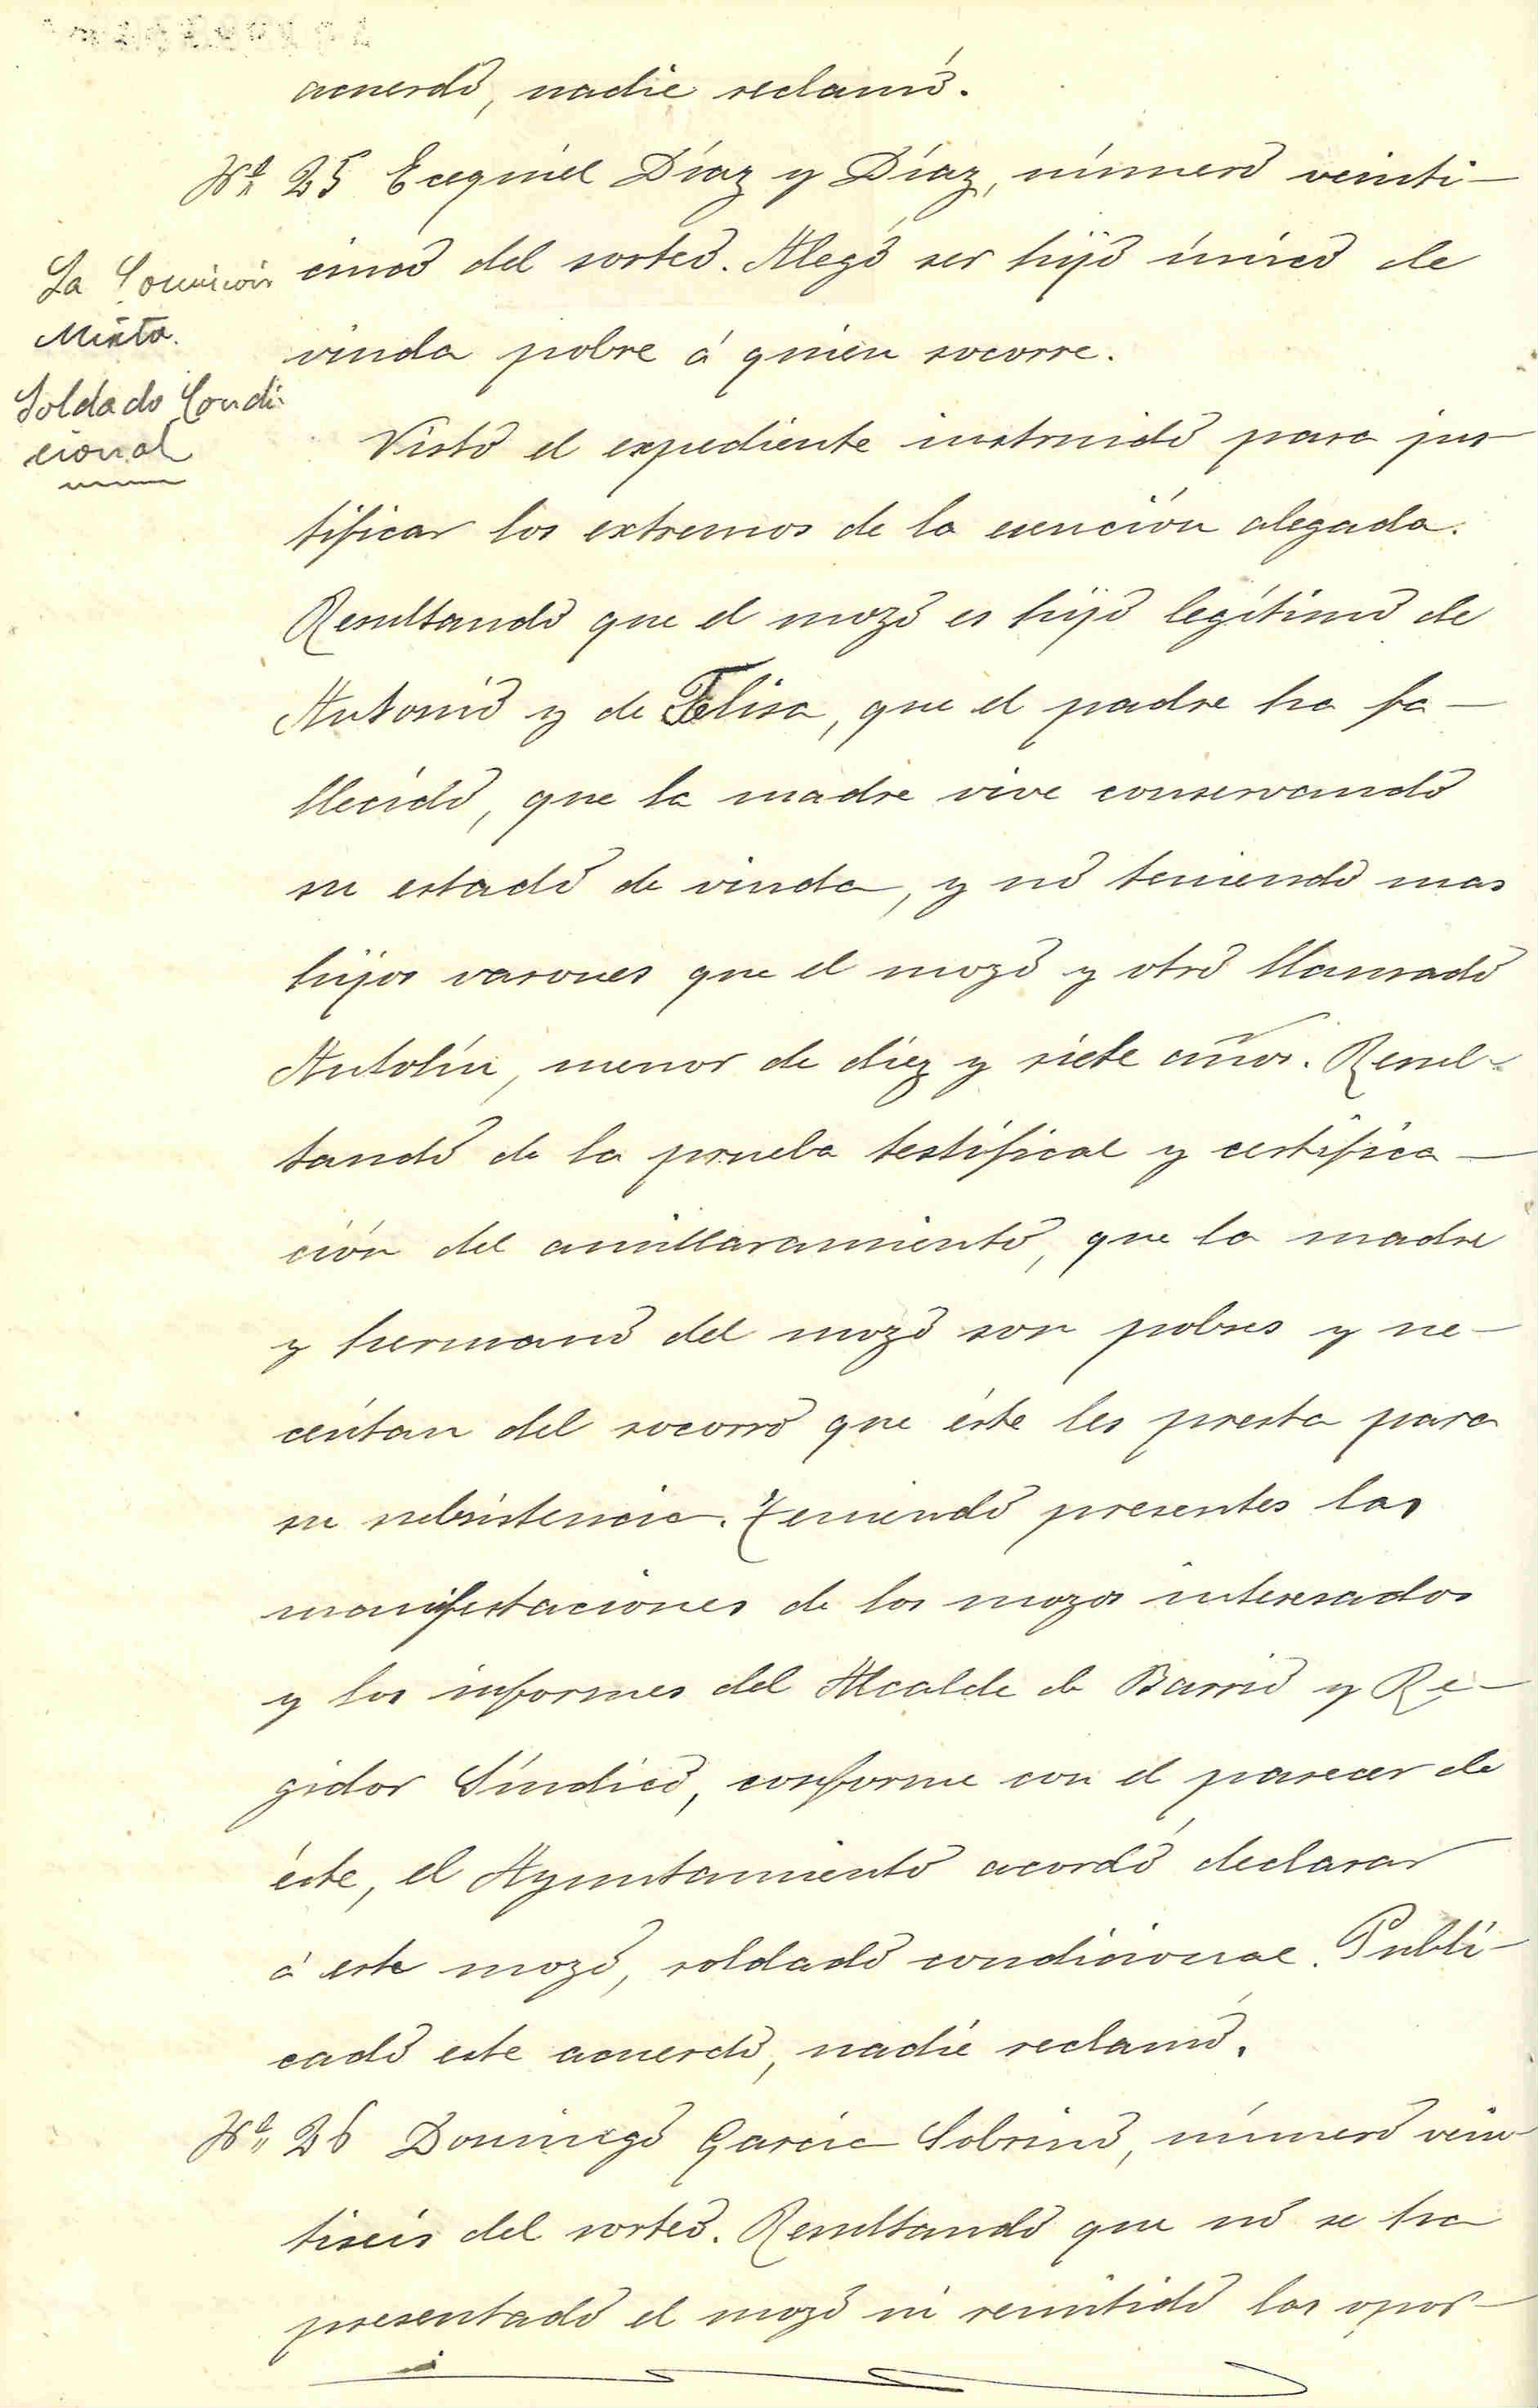 acuerdo, nadie reclamó.
Nº 25 Ecequiel Díaz y Díaz, número veinti-
cinco del sorteo. Alegó ser hijo único de
viuda pobre á quien socorre.
La Comisión
Mixta.
Soldado Condi-
cional
Visto el expediente instruido para jus-
tificar los extremos de la exención alegada.
Resultando que el mozo es hijo legítimo de
Antonio y de Felisa, que el padre ha fa-
llecido, que la madre vive conservando
su estado de viuda, y no teniendo mas
hijos varones que el mozo y otro llamado
Antolín, menor de diez y siete años. Resul-
tando de la prueba testifical y certifica-
ción del amillaramiento, que la madre
y hermano del mozo son pobres y ne-
cesitan del socorro que éste les presta para
su subsistencia. Teniendo presentes las
manifestaciones de los mozos interesados
y los informes del Alcalde de Barrio y Re-
gidor Síndico, conforme con el parecer de
éste, el Ayuntamiento acordó declarar
á este mozo, soldado condicional. Publi-
cado este acuerdo, nadie reclamó.
Nº 26 Domingo García Sobrino, número vein-
tiseis del sorteo. Resultando que no se ha
presentado el mozo ni remitido los opor-